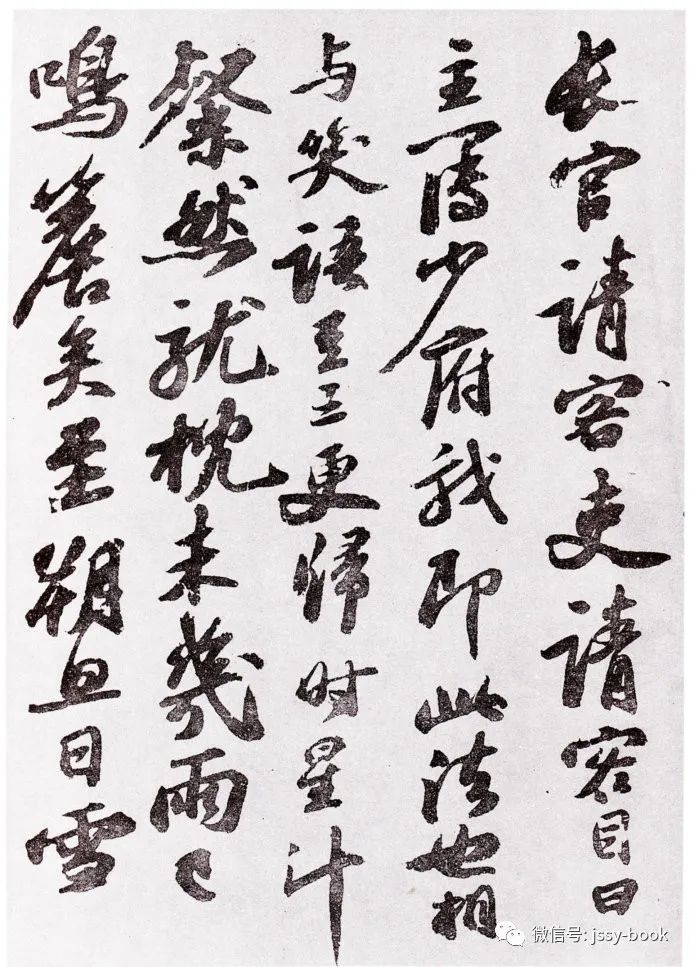 長官請客吏請客目曰
主簿少府我即此法也相
与笑語至三更歸时星斗
粲然就枕未幾雨已
鳴簷矣至朔旦日雪
微信号: jssy-book